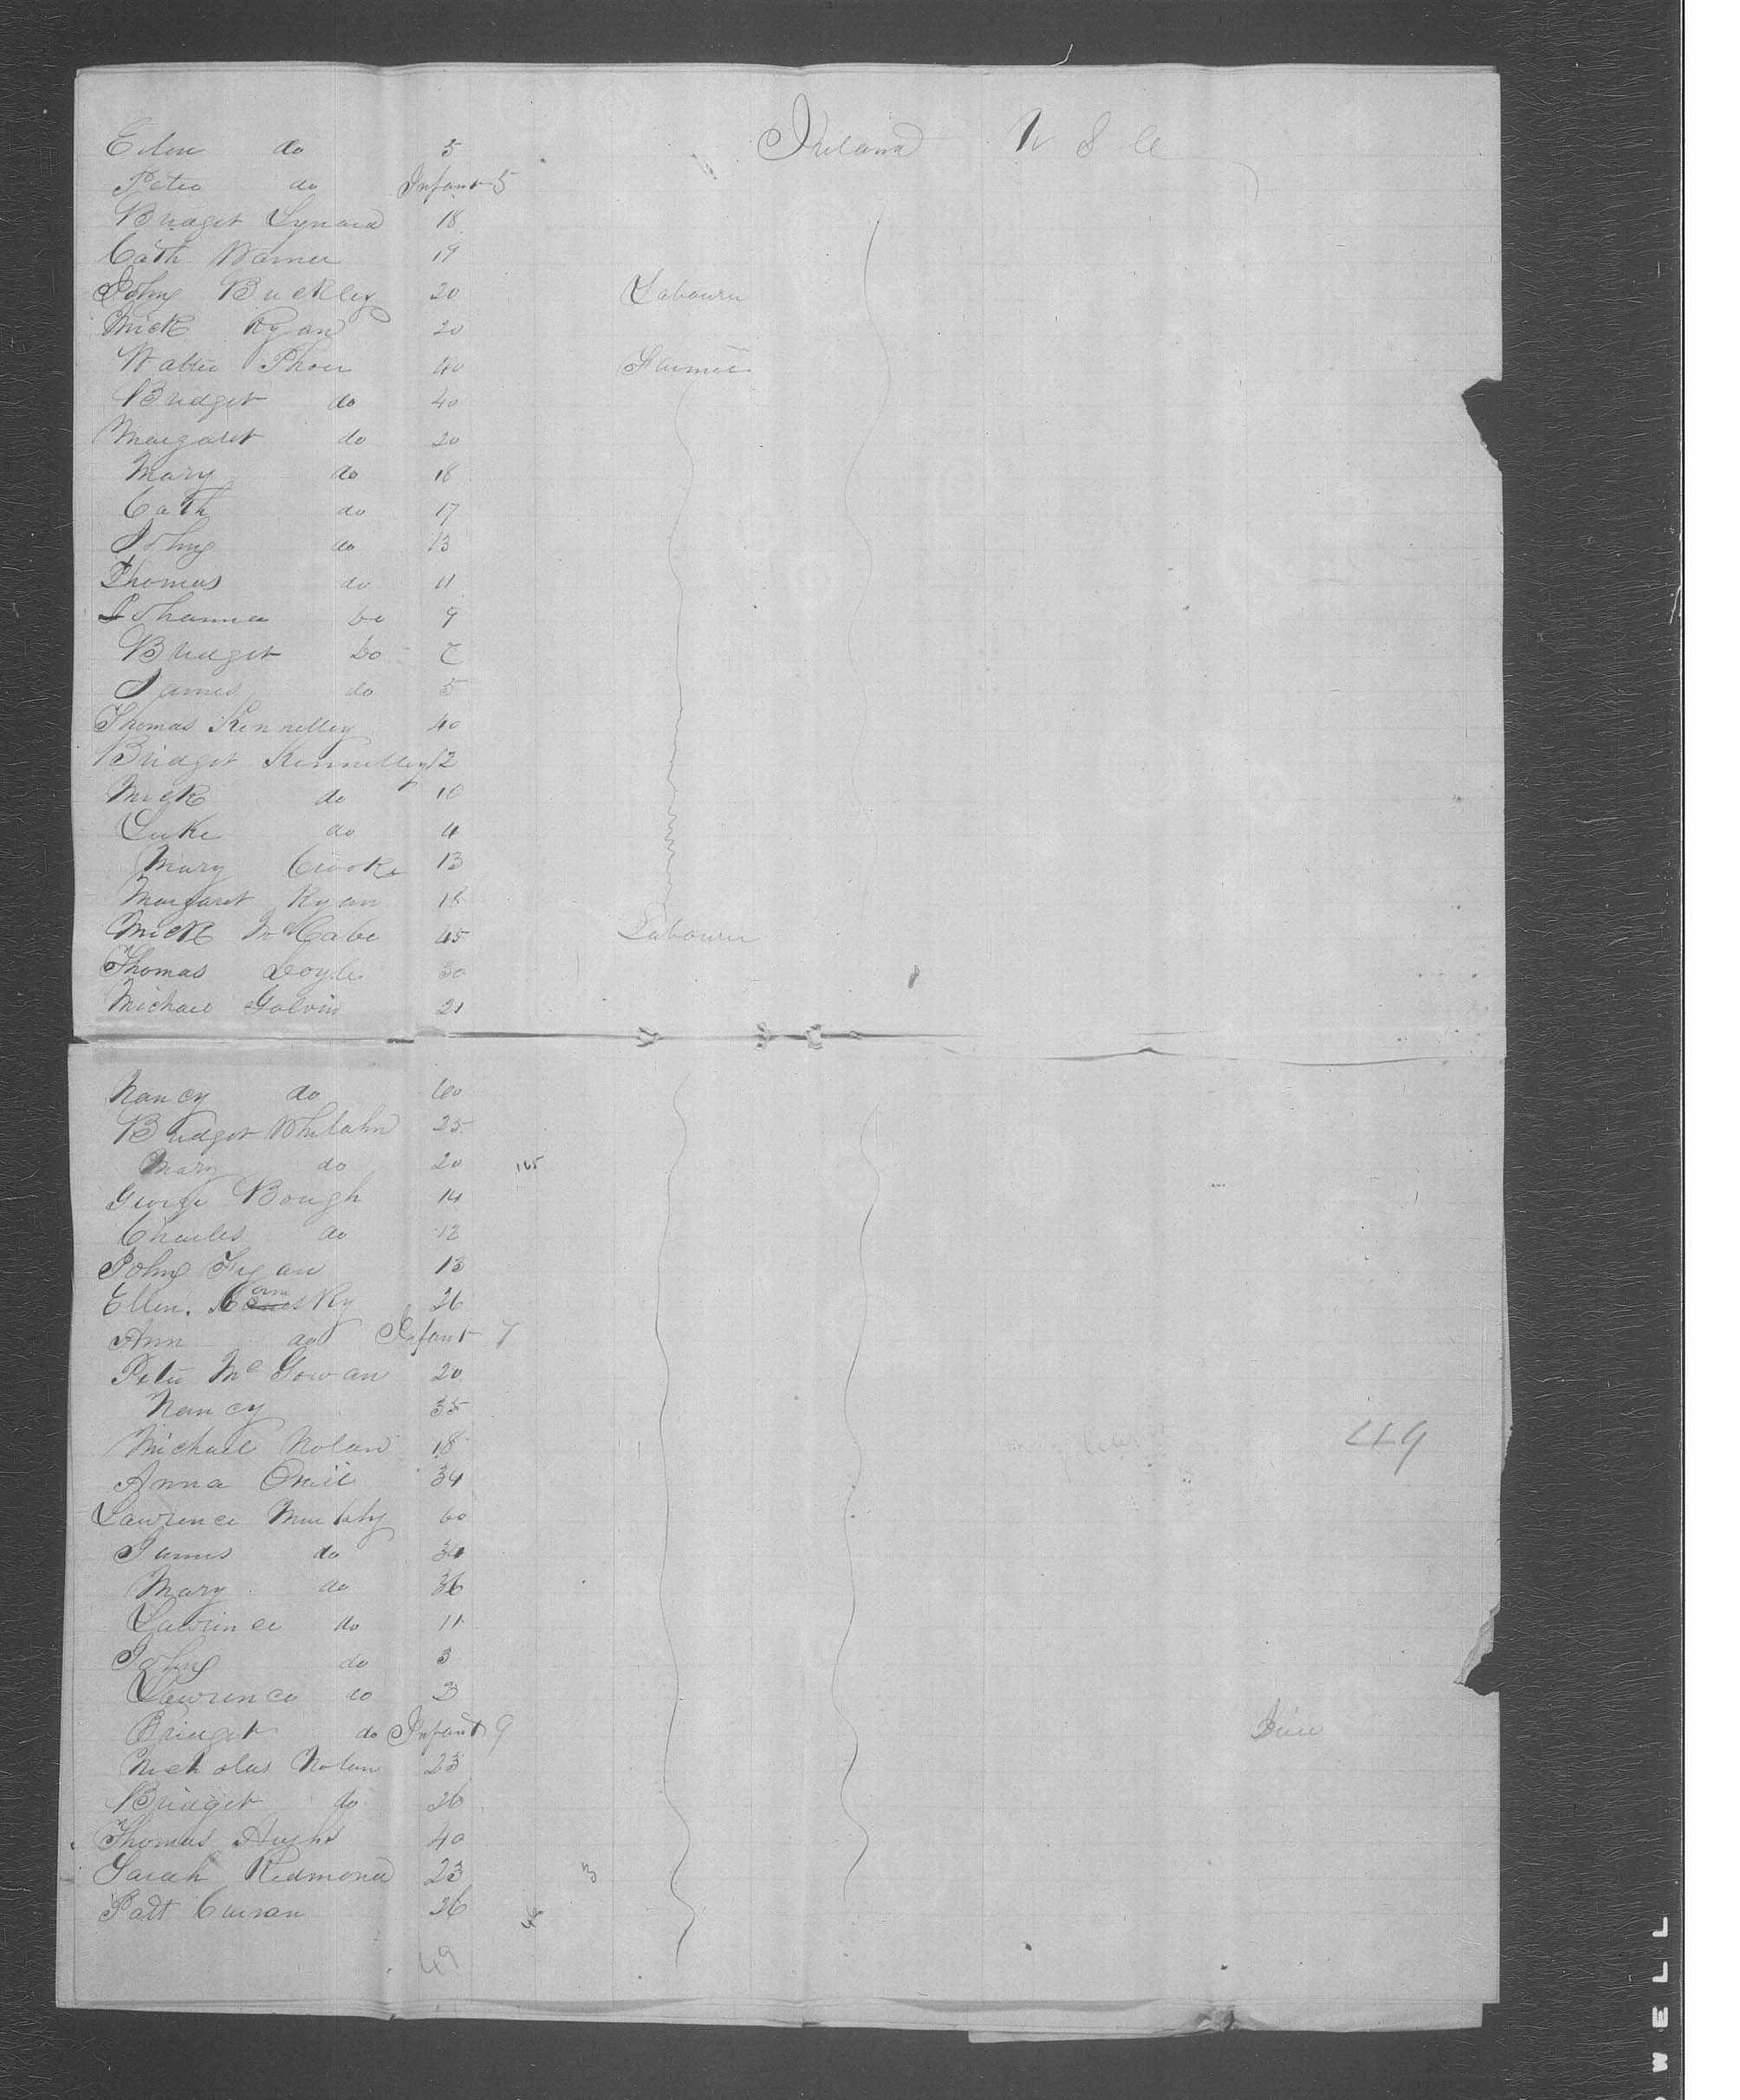 Ellen do 5 Ireland U S A
Peter do Infant 5
Bridget Lynard 18
Cath Warner 19
John Buckley 20 Labourer
Mick Ryan 20
Walter Phoer 40 Farmer
Bridget do 40
Margaret do 20
Mary do 18
Cath do 17
John do 13
Thomas do 11
Johanna do 9
Bridget do 7
James do 5
Thomas Kennelley 40
Bridget Kennelley 12
Mick do 10
Luke do 4
Mary Crooke 13
Margaret Ryan 18
Mick McCabe 45 Labourer
Thomas Doyle 30
Michael Galvin 21
Nancy do 60
Bridget Whelahn 25
Mary do 20 165
George Bough 14
Charles do 12
John Fegan 13
Ellen 26
Ann do Infant 7
Peter McGowan 20
Nancy 35
Michael Nolan 18 49
Anna Oneil 34
Lawrence Murphy 60
James do 34
Mary do 36
Lawrence do 11
John do 3
Lawrence do 2
Bridget do Infant 9 Died
Nicholas Nolan 23
Bridget do 26
Thomas Hughs 40
Sarah Redmond 23 3
Patt Curran 26 46
49
WELL